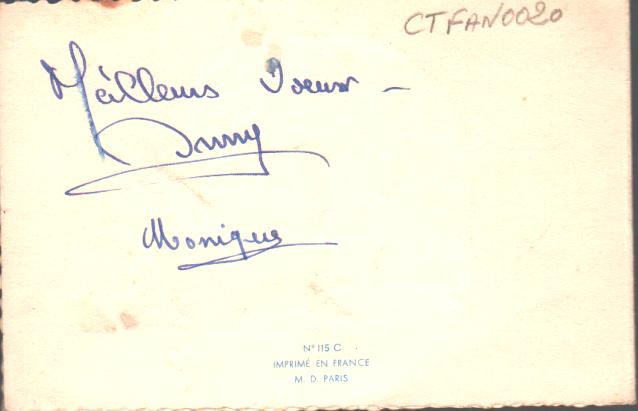 CTFAN0020
Meilleurs Voeux -
Dany
Monique
N° 115 C
IMPRIMÉ EN FRANCE
M. D. PARIS